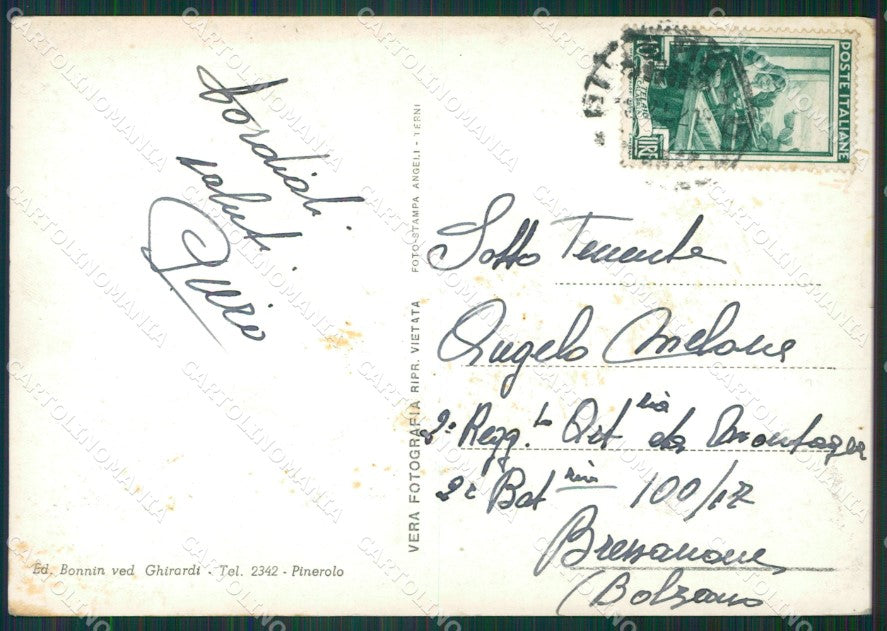 Cordiali
saluti
VERA FOTOGRAFIA RIPR. VIETATA FOTO-STAMPA ANGELI - TERNI
POSTE ITALIANE
LIRE
Sotto Tenente
Angelo Melone
2° Regg.to Art.ria da Montagna
2a Batria 100/17
Bressanone
(Bolzano
Ed. Bonnin ved Ghirardi - Tel. 2342 - Pinerolo
CARTOLINOMANIA